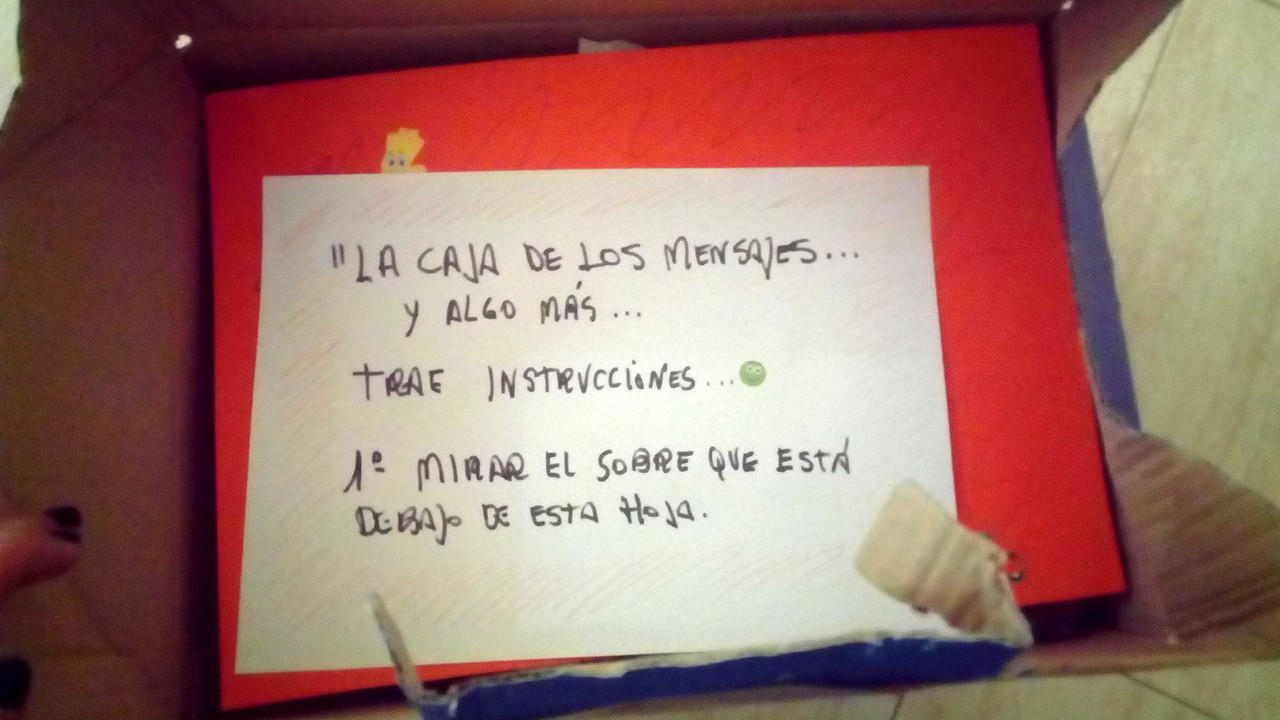 "LA CAJA DE LOS MENSAJES...
Y ALGO MÁS...
TRAE INSTRUCCIONES...
1º MIRAR EL SOBRE QUE ESTÁ
DEBAJO DE ESTA HOJA.